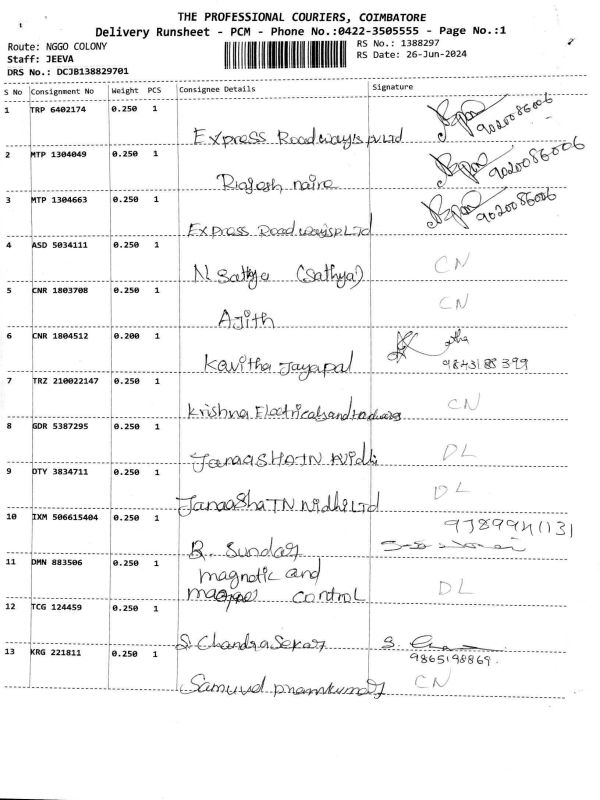 THE PROFESSIONAL COURIERS, COIMBATORE
Delivery Runsheet - PCM - Phone No.:0422-3505555 - Page No.:1
Route: NGGO COLONY
RS No.: 1388297
Staff: JEEVA
RS Date: 26-Jun-2024
DRS No.: DCJB138829701
S No Consignment No Weight PCS Consignee Details Signature
1 TRP 6402174 0.250 1
Express Roadways Pvt Ltd 9020086006
2 MTP 1304049 0.250 1
Rajesh naire 9020086006
3 MTP 1304663 0.250 1
Express Roadways P Ltd 9020086006
4 ASD 5034111 0.250 1
N Sathya (Sathya) CN
5 CNR 1803708 0.250 1
Ajith CN
6 CNR 1804512 0.200 1
Kavitha Jayapal 9843188399
7 TRZ 210022147 0.250 1
Krishna Electricals and Hardwares CN
8 GDR 5387295 0.250 1
JanaaSHATN Nidhi DL
9 OTY 3834711 0.250 1
JanaaShaTN Nidhi LTD DL
10 IXM 506615404 0.250 1
R. Sundar
11 DMN 883506 0.250 1
magnetic and
control DL
12 TCG 124459 0.250 1
S. Chandra Sekar S.
9865198869.
13 KRG 221811 0.250 1
CN